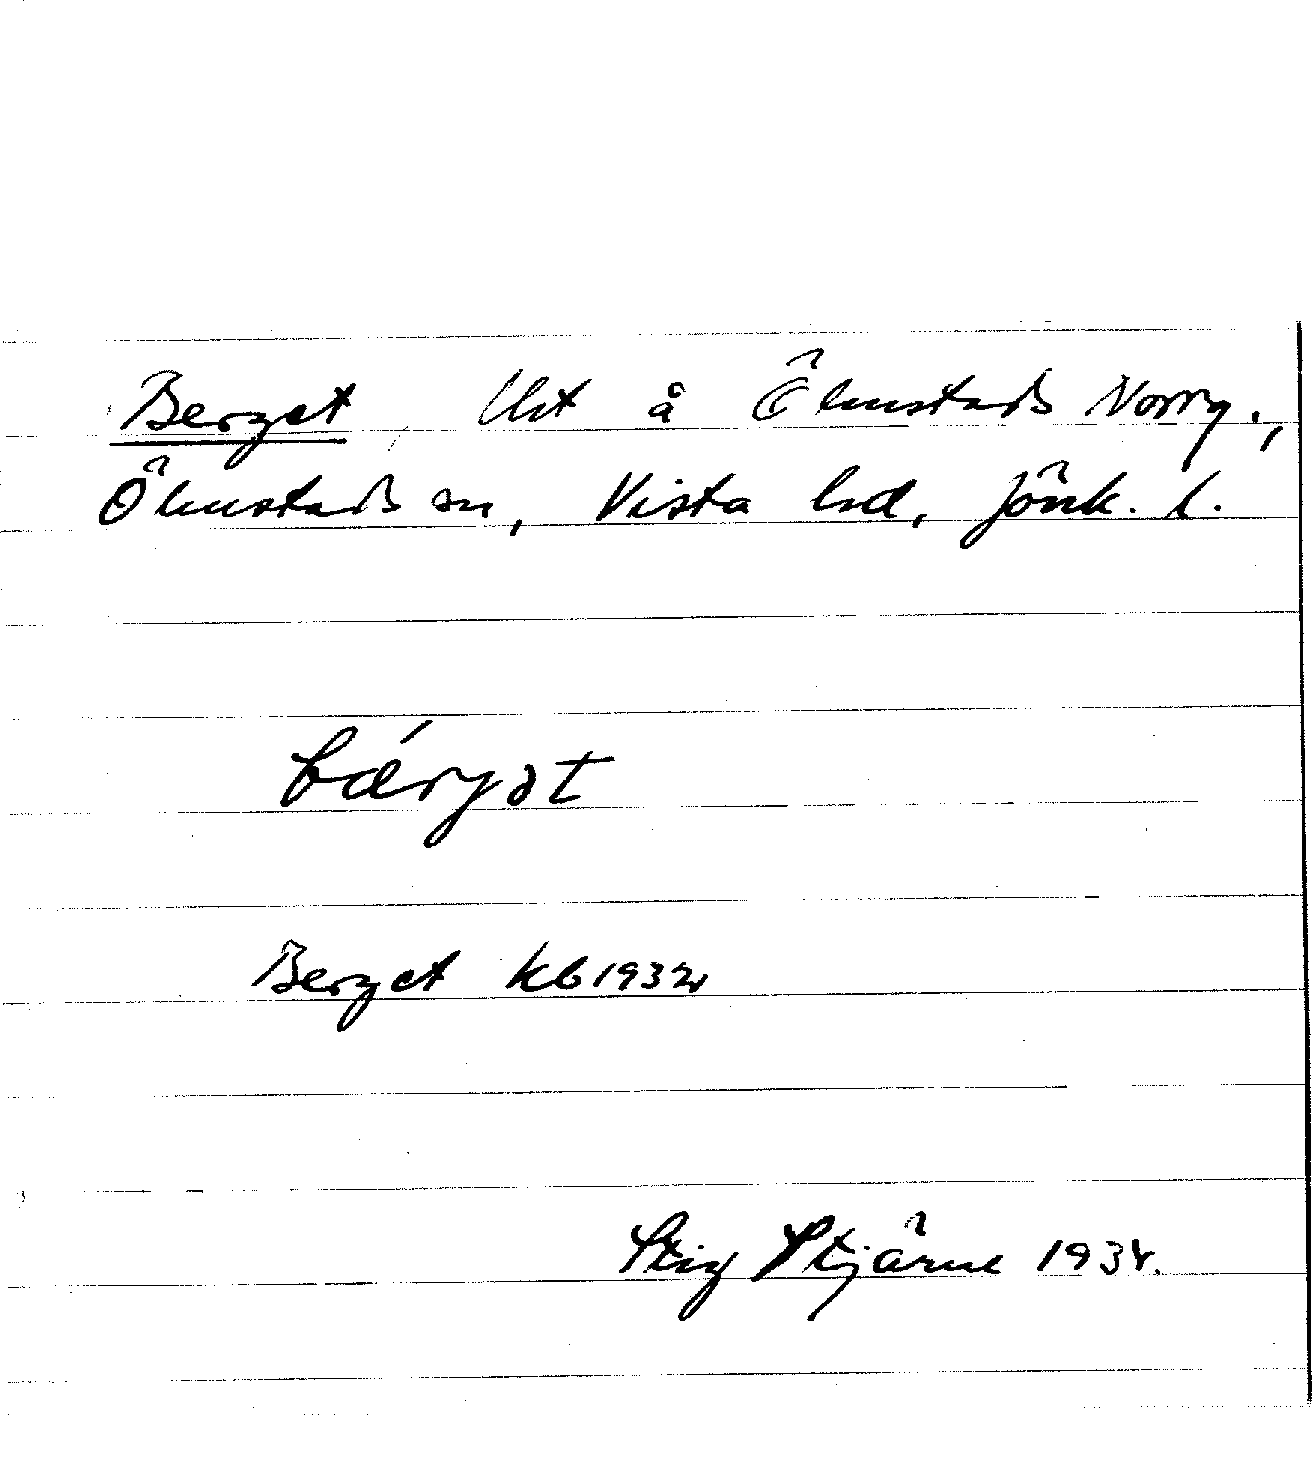 Berget, Ust å Ölmstads Norrg.,
Ölmstads sn, Vista hd, Jönk. l.
bǽrjət
Berget kb 1932
Stig Stjärne 1934.